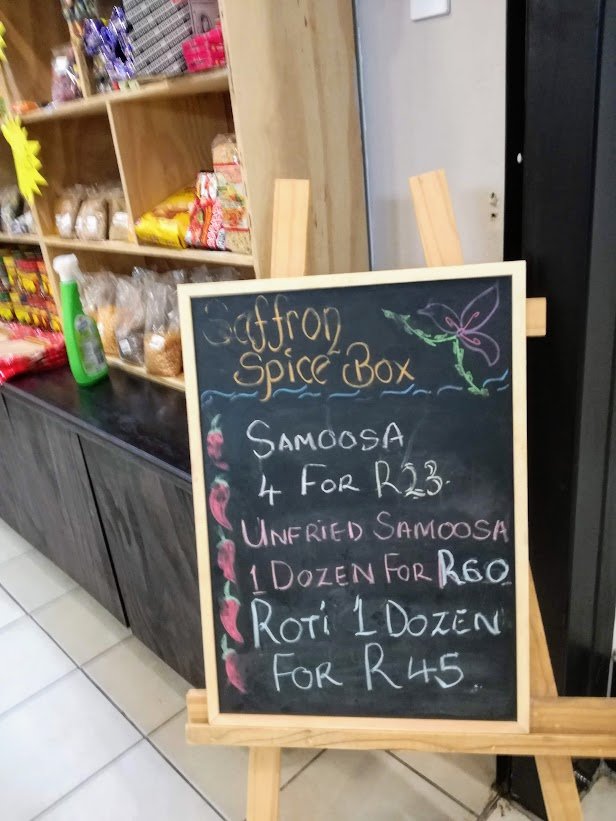 Saffron
Spice Box
SAMOOSA
4 FOR R23.
UNFRIED SAMOOSA
1 DOZEN FOR R60
ROTi 1 DOZEN
FOR R45